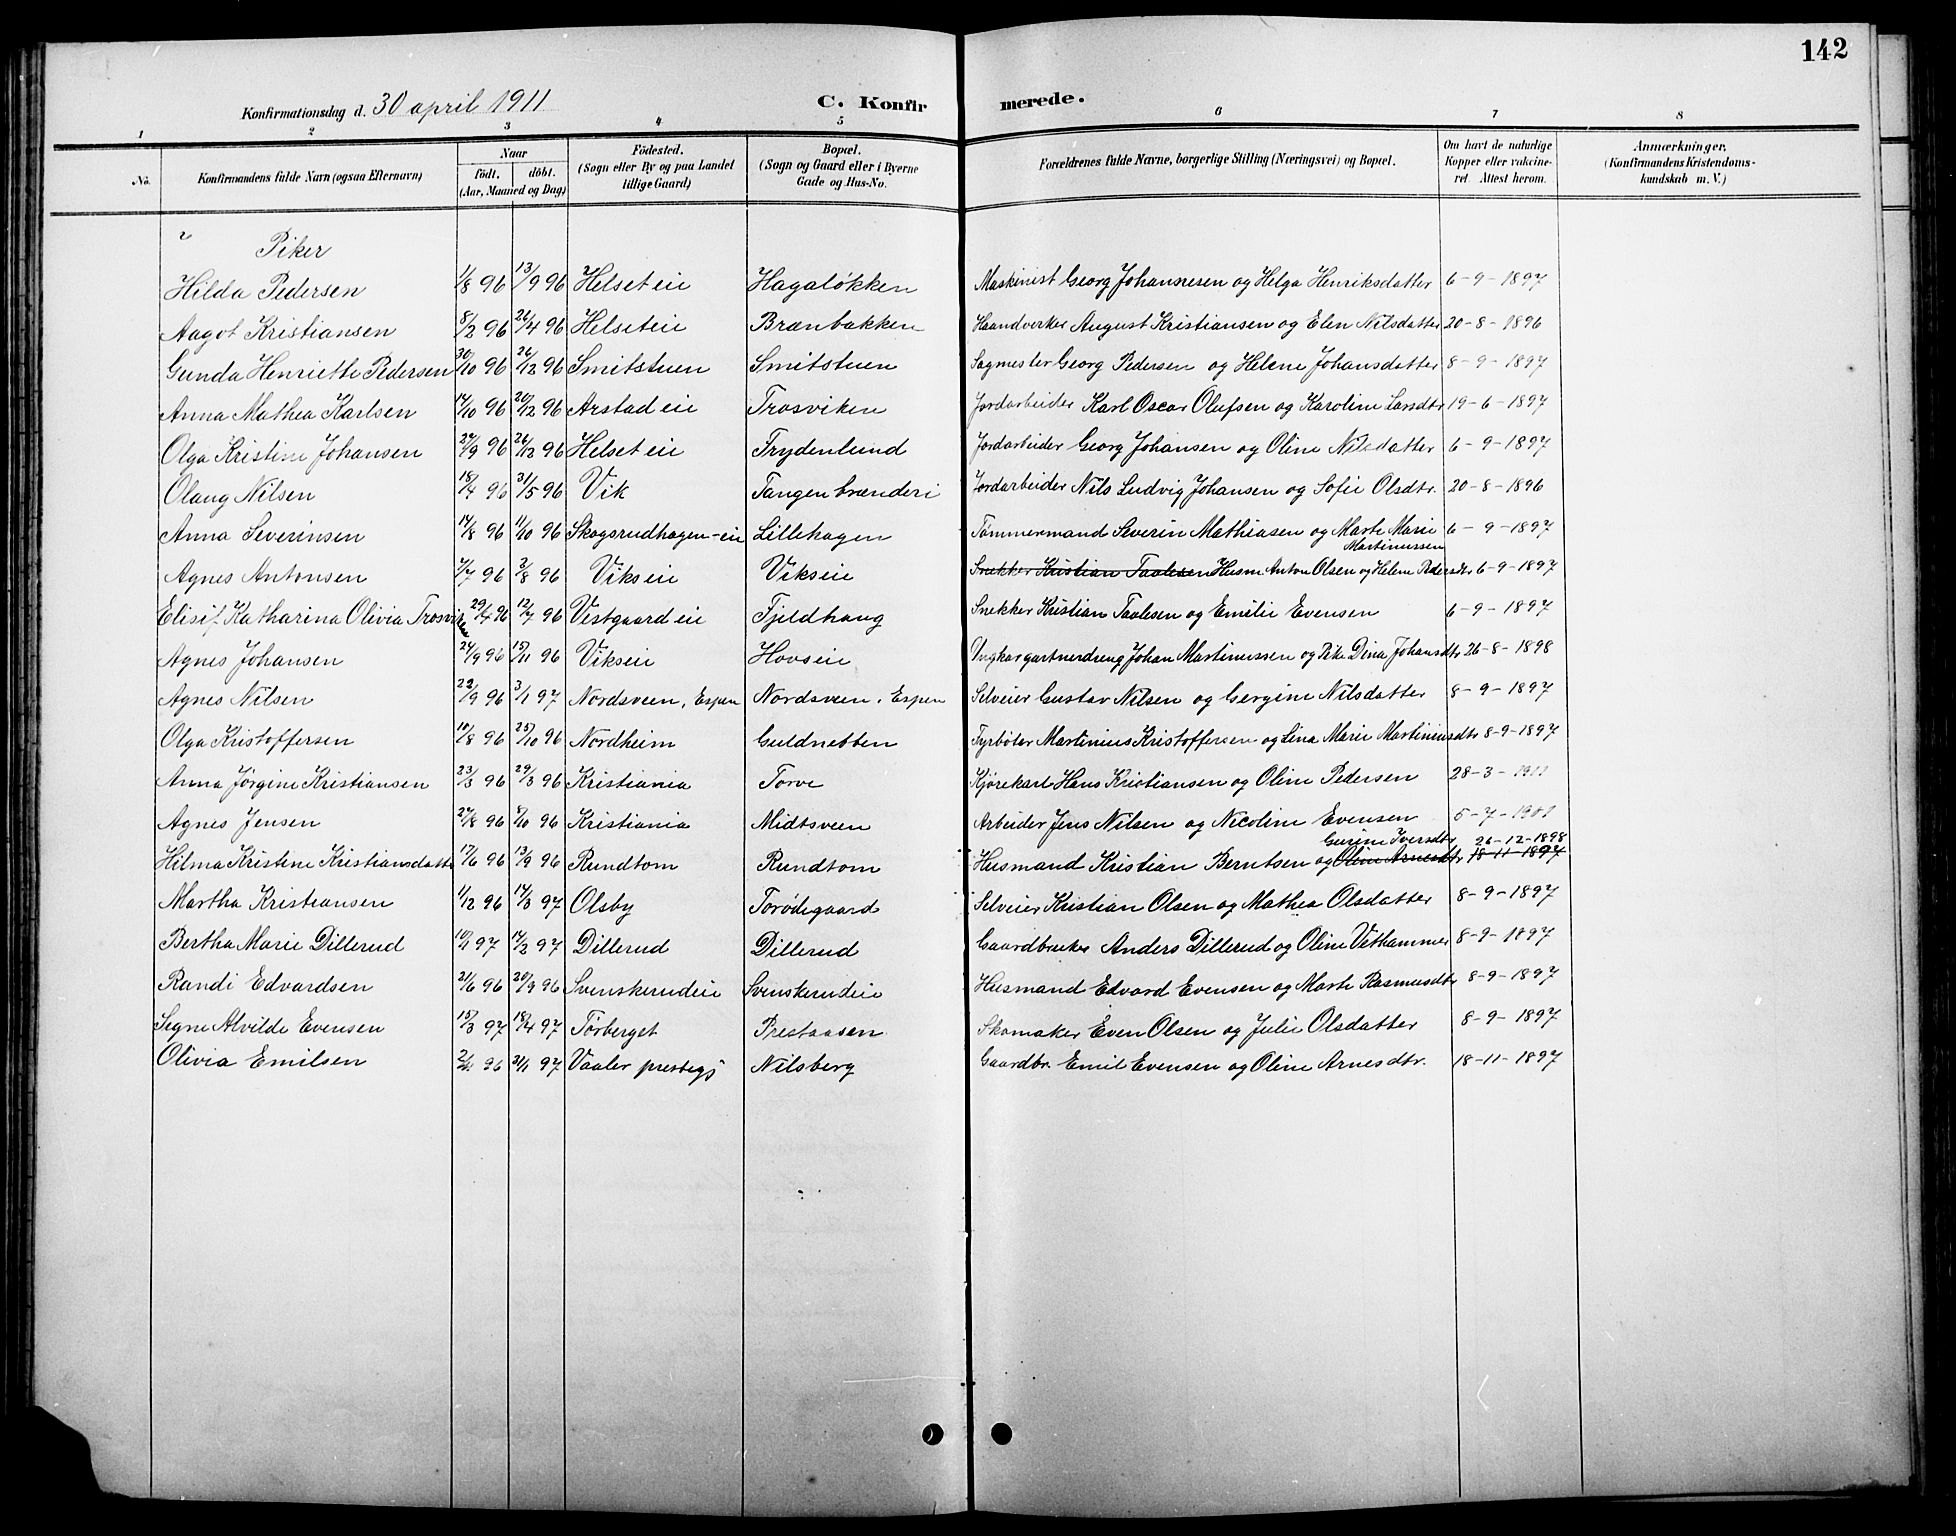 142
Konfirmationsdag d. 30 april 1911
C. Konfirmerede.
1 2 3 4 5 6 7 8
No.
Konfirmandens fulde Navn (ogsaa Efternavn)
Naar födt. döbt. (Aar, Maaned og Dag)
Födested. (Sogn eller By og paa Landet tillige Gaard)
Bopæl. (Sogn og Gaard eller i Byerne Gade og Hus-No.
Forældrenes fulde Navne, borgerlige Stilling (Næringsvei) og Bopæl.
Om havt de naturlige Kopper eller vakcineret Attest herom.
Anmærkninger, (Konfirmandens Kristendomskundskab m. V.)
Piker
Hilda Pedersen 1/8 96 13/9 96 Helset eie Hagaløkken Maskinist Georg Johannesen og Helga Henriksdatter 6-9-1897
Aagot Kristiansen 8/2 96 26/4 96 Helseteie Brænbakken Haandverker August Kristiansen og Elen Nilsdatter 20-8-1896
Gunda Henriette Pedersen 30/10 96 26/12 96 Smitstuen Smitstuen Sagmester Georg Pedersen og Helene Johansdatter 8-9-1897
Anna Mathea Karlsen 14/10 96 20/12 96 Arstad eie Trosviken Jordarbeider Karl Oscar Olufsen og Karoline Larsdtr 19-6-1897
Olga Kristine Johansen 24/9 96 26/12 96 Helset eie Frydenlund Jordarbeider Georg Johansen og Oline Nilsdatter 6-9-1897
Olaug Nilsen 18/4 96 31/5 96 Vik Tangen brænderi Jordarbeider Nils Ludvig Johansen og Sofie Olsdtr. 20-8-1896
Anna Severinsen 14/8 96 11/10 96 Skogsrudhagen-eie Lillehagen Tømmermand Severin Mathiasen og Marte Marie Martinussen 6-9-1897
Agnes Antonsen 7/7 96 2/8 96 Vikseie Vikseie Snekker Kristian Taalesen Husm Anton Olsen og Helene Pedersdtr 6-9-1897
Elisif Katharina Olivia Trosviken 29/4 96 12/7 96 Vestgaard eie Fjeldhaug Snekker Kristian Taalesen og Emilie Evensen 6-9-1897
Agnes Johansen 24/9 96 15/11 96 Vikseie Hovseie Ungkar gartnerdreng Johan Martinussen og Pike Dina Johansdtr 26-8-1898
Agnes Nilsen 22/9 96 3/1 97 Nordsveen, Espen Nordsveen, Espen Selveier Gustav Nilsen og Gergine Nilsdatter 8-9-1897
Olga Kristoffersen 10/8 96 25/10 96 Nordheim Guldnebben Fyrbøter Martinius Kristoffersen og Lina Marie Martiniusdtr 8-9-1897
Anna Jørgine Kristiansen 23/3 96 29/3 96 Kristiania Torve Kjørekarl Hans Kristiansen og Oline Pedersen 28-3-1911
Agnes Jensen 27/8 96 8/10 96 Kristiania Midtsveen Arbeider Jens Nilsen og Nicoline Evensen 5-7-1901
Hilma Kristine Kristiansdatter 17/6 96 13/9 96 Rundtom Rundtom Husmand Kristian Berntsen og Oline Arnesdtr Gurine Iversdtr 26-12-1898 18-11-1897
Martha Kristiansen 1/12 96 14/3 97 Olsby Torødegaard Selveier Kristian Olsen og Mathea Olsdatter 8-9-1897
Bertha Marie Dillerud 10/1 97 14/2 97 Dillerud Dillerud Gaardbruker Anders Dillerud og Oline Vethammer 8-9-1897
Randi Edvardsen 21/6 96 20/9 96 Svenskerudeie Svenskerudeie Husmand Edvard Evensen og Marte Rasmusdtr 8-9-1897
Segne Alvilde Evensen 15/3 97 18/4 97 Törberget Prestaasen Skomaker Even Olsen og Julie Olsdatter 8-9-1897
Olivia Emilsen 96 31/1 97 Vaaler prestegj Nilsberg Gaardbr. Emil Evensen og Oline Arnesdtr. 18-11-1897